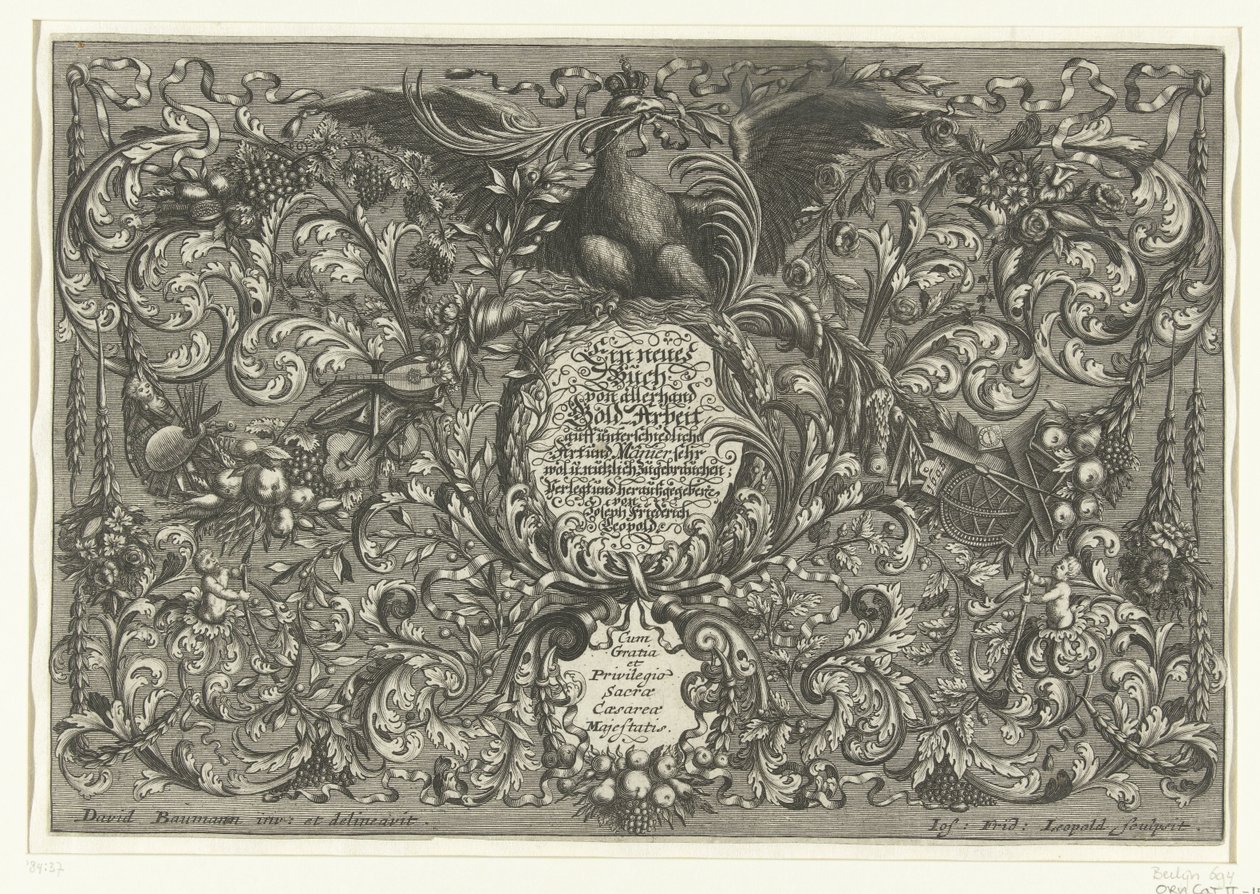 Ein neues
Buch
von allerhand
Gold Arbeit
auff unterschiedliche
Art und Manier sehr
wol u. nutzlich zugebrauchen
Verlegt und herausgegeben,
von
Joseph Friederich
Leopold
Cum
Gratia
et
Privilegio
Sacræ
Cæsareæ
Majestatis.
David Baumann inv: et delineavit.
Ios: Frid: Leopold sculpsit.
'84:37
Berlijn 694
ORN CAT II